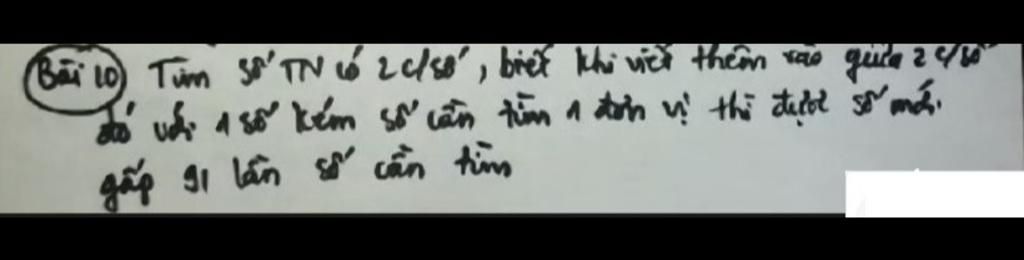 Bài 10 Tìm số TN có 2 c/số, biết khi viết thêm vào giữa 2 c/số
đó với 1 số kém số cần tìm 1 đơn vị thì được số mới
gấp 91 lần số cần tìm